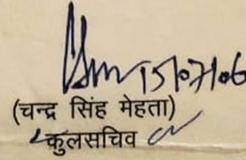 15/07/06
(चन्द्र सिंह मेहता)
कुलसचिव